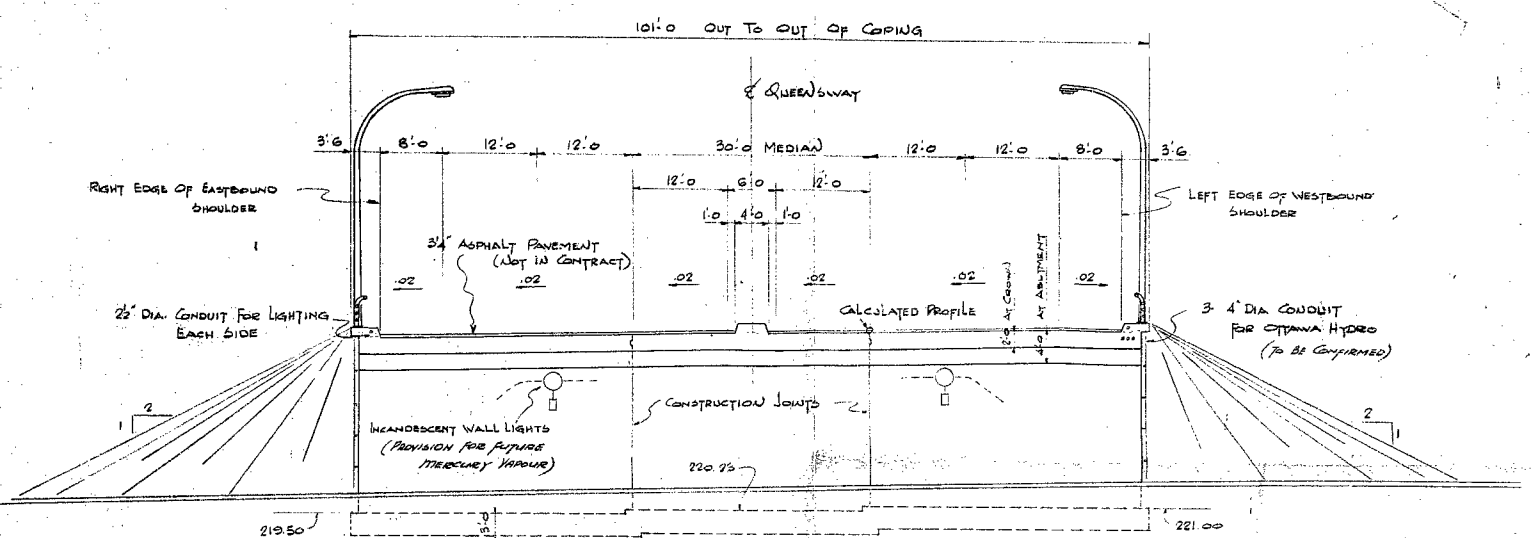 101'-0 OUT TO OUT OF COPING
℄ QUEENSWAY
3'-6 8'-0 12'-0 12'-0 30'-0 MEDIAN 12'-0 12'-0 8'-0 3'-6
12'-0 6'-0 12'-0
1'-0 4'-0 1'-0
RIGHT EDGE OF EASTBOUND
SHOULDER
LEFT EDGE OF WESTBOUND
SHOULDER
3¼" ASPHALT PAVEMENT
(NOT IN CONTRACT)
.02 .02 .02 .02 .02 .02
2'-0 AT CROWN
4'-0 AT ABUTMENT
2½" DIA. CONDUIT FOR LIGHTING
EACH SIDE
CALCULATED PROFILE
3- 4" DIA CONDUIT
FOR OTTAWA HYDRO
(TO BE CONFIRMED)
2
1
INCANDESCENT WALL LIGHTS
(PROVISION FOR FUTURE
MERCURY VAPOUR)
CONSTRUCTION JOINTS
2
1
220.25
219.50
3'-0
221.00